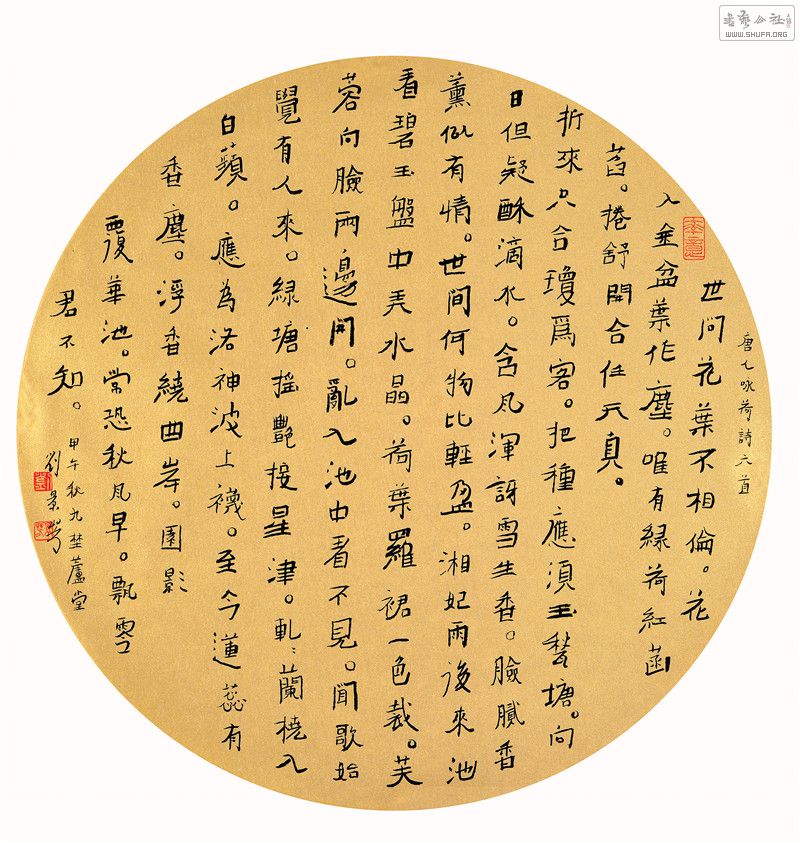 書藝公社
WWW.SHUFA.ORG
唐人咏荷詩六首
世间花葉不相倫。花
入金盆葉作塵。唯有緑荷紅菡
萏。捲舒開合任天真。
折來只合瓊爲客。把種應須玉甃塘。向
日但疑酥滴水。含风渾訝雪生香。臉膩香
薰似有情。世間何物比輕盈。湘妃雨後來池
看碧玉盤中弄水晶。荷葉羅裙一色裁。芙
蓉向臉兩邊開。亂入池中看不見。聞歌始
覺有人來。緑塘摇艷接星津。軋〻蘭橈入
白蘋。應為洛神波上襪。至今蓮蕊有
香塵。浮香繞曲岸。圓影
覆華池。常恐秋风早。飘零
君不知。甲午秋九埜蘆堂
劉景